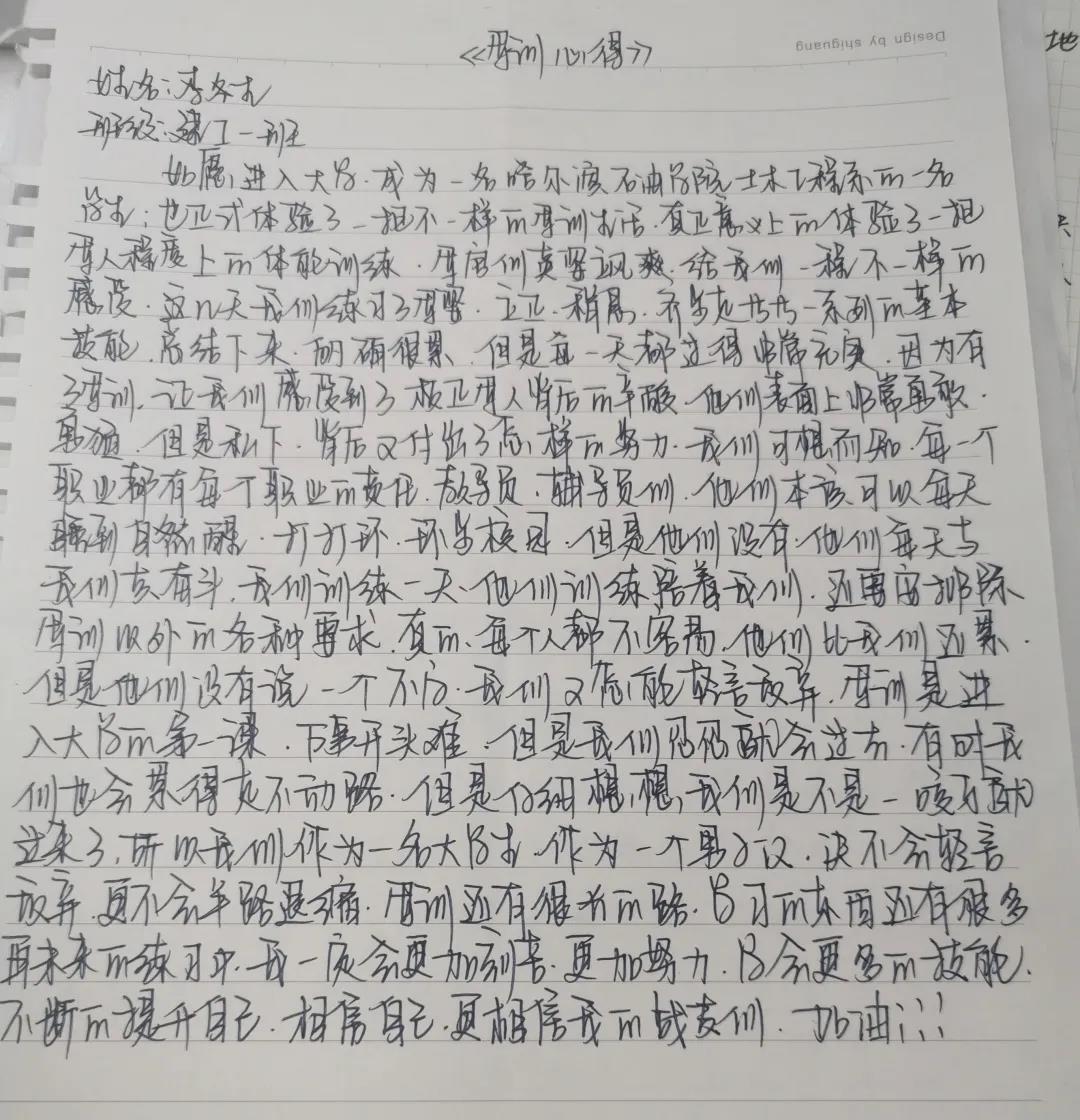 Design by shiguang
《军训心得》
地
姓名:李冬
班级:建工一班
如愿进入大学.成为一名哈尔滨石油学院土木工程系的一名
学生;也正式体验了一把不一样的军训生活.真正意义上的体验了一把
军人程度上的体能训练.军官们英姿飒爽.给我们一种不一样的
感受.这几天我们练习了军姿.立正.稍息.齐步走等等一系列的基本
技能.总结下来.的确很累.但是每一天都过得非常充实.因为有
了军训.让我们感受到了校正军人背后的辛酸.他们表面上非常勇敢.
勇猛.但是私下.背后又付出了怎样的努力.我们可想而知.每一个
职业都有每个职业的责任.教导员.辅导员们.他们本该可以每天
睡到自然醒.打打环.环步校园.但是他们没有.他们每天与
我们共奋斗.我们训练一天.他们训练陪着我们.还要安排除
军训以外的各种要求.真的.每个人都不容易.他们比我们还累.
但是他们没有说一个不字.我们又怎能轻言放弃.军训是进
入大学的第一课.万事开头难.但是我们码码就会过去.有时我
们也会累得走不动路.但是仔细想想.我们是不是一咬牙就
过来了.所以我们作为一名大学生.作为一个男子汉.决不会轻言
放弃.更不会半路退缩.军训还有很长的路.学习的东西还有很多
再未来的练习中.我一定会更加刻苦.更加努力.学会更多的技能.
不断的提升自己.相信自己.更相信我的战友们.加油!!!